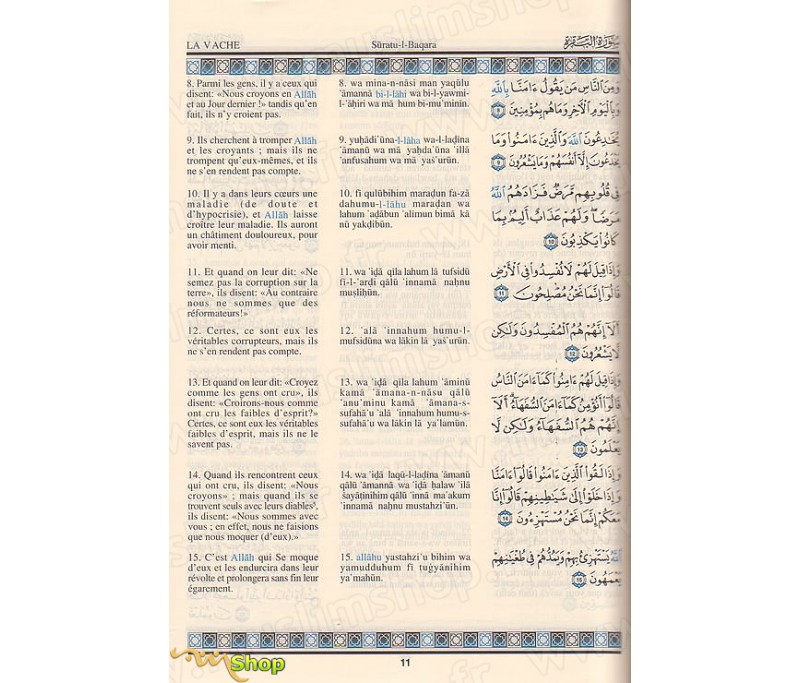 LA VACHE
Sūratu-l-Baqara
سورة البقرة
8. Parmi les gens, il y a ceux qui
disent: «Nous croyons en Allāh
et au Jour dernier !» tandis qu'en
fait, ils n'y croient pas.
9. Ils cherchent à tromper Allāh
et les croyants ; mais ils ne
trompent qu'eux-mêmes, et ils
ne s'en rendent pas compte.
10. Il y a dans leurs cœurs une
maladie (de doute et
d'hypocrisie), et Allāh laisse
croître leur maladie. Ils auront
un châtiment douloureux, pour
avoir menti.
11. Et quand on leur dit: «Ne
semez pas la corruption sur la
terre», ils disent: «Au contraire
nous ne sommes que des
réformateurs!»
12. Certes, ce sont eux les
véritables corrupteurs, mais ils
ne s'en rendent pas compte.
13. Et quand on leur dit: «Croyez
comme les gens ont cru», ils
disent: «Croirons-nous comme
ont cru les faibles d'esprit?»
Certes, ce sont eux les véritables
faibles d'esprit, mais ils ne le
savent pas.
14. Quand ils rencontrent ceux
qui ont cru, ils disent: «Nous
croyons» ; mais quand ils se
trouvent seuls avec leurs diables⁵,
ils disent: «Nous sommes avec
vous ; en effet, nous ne faisions
que nous moquer (d'eux).»
15. C'est Allāh qui Se moque
d'eux et les endurcira dans leur
révolte et prolongera sans fin leur
égarement.
8. wa mina-n-nāsi man yaqūlu
'āmannā bi-l-lāhi wa bi-l-yawmi-
l-'āḫiri wa mā hum bi-mu'minīn.
9. yuḫādi'ūna-l-lāha wa-l-laḏīna
'āmanū wa mā yaḫda'ūna 'illā
'anfusahum wa mā yaš'urūn.
10. fī qulūbihim maraḍun fa-zā
dahumu-l-lāhu maraḍan wa
lahum 'aḏābun 'alīmun bimā kā
nū yakḏibūn.
11. wa 'iḏā qīla lahum lā tufsidū
fi-l-'arḍi qālū 'innamā naḥnu
muṣliḥūn.
12. 'alā 'innahum humu-l-
mufsidūna wa lākin lā yaš'urūn.
13. wa 'iḏā qīla lahum 'āminū
kamā 'āmana-n-nāsu qālū
'anu'minu kamā 'āmana-s-
sufahā'u 'alā 'innahum humu-s-
sufahā'u wa lākin lā ya'lamūn.
14. wa 'iḏā laqū-l-laḏīna 'āmanū
qālū 'āmannā wa 'iḏā ḫalaw 'ilā
šayāṭīnihim qālū 'innā ma'akum
'innamā naḥnu mustahzi'ūn.
15. allāhu yastahzi'u bihim wa
yamudduhum fī ṭuġyānihim
ya'mahūn.
وَمِنَ النَّاسِ مَن يَقُولُ ءَامَنَّا بِاللَّهِ
وَبِالْيَوْمِ الْآخِرِ وَمَا هُم بِمُؤْمِنِينَ 8
يُخَادِعُونَ اللَّهَ وَالَّذِينَ ءَامَنُوا وَمَا
يَخْدَعُونَ إِلَّا أَنفُسَهُمْ وَمَا يَشْعُرُونَ 9
فِي قُلُوبِهِم مَّرَضٌ فَزَادَهُمُ اللَّهُ
مَرَضًا وَلَهُمْ عَذَابٌ أَلِيمٌ بِمَا
كَانُوا يَكْذِبُونَ 10
وَإِذَا قِيلَ لَهُمْ لَا تُفْسِدُوا فِي الْأَرْضِ
قَالُوا إِنَّمَا نَحْنُ مُصْلِحُونَ 11
أَلَا إِنَّهُمْ هُمُ الْمُفْسِدُونَ وَلَٰكِن
لَّا يَشْعُرُونَ 12
وَإِذَا قِيلَ لَهُمْ ءَامِنُوا كَمَا ءَامَنَ النَّاسُ
قَالُوا أَنُؤْمِنُ كَمَا ءَامَنَ السُّفَهَاءُ أَلَا
إِنَّهُمْ هُمُ السُّفَهَاءُ وَلَٰكِن لَّا
يَعْلَمُونَ 13
وَإِذَا لَقُوا الَّذِينَ ءَامَنُوا قَالُوا ءَامَنَّا
وَإِذَا خَلَوْا إِلَىٰ شَيَاطِينِهِمْ قَالُوا إِنَّا
مَعَكُمْ إِنَّمَا نَحْنُ مُسْتَهْزِءُونَ 14
اللَّهُ يَسْتَهْزِئُ بِهِمْ وَيَمُدُّهُمْ فِي طُغْيَانِهِمْ
يَعْمَهُونَ 15
11
Shop